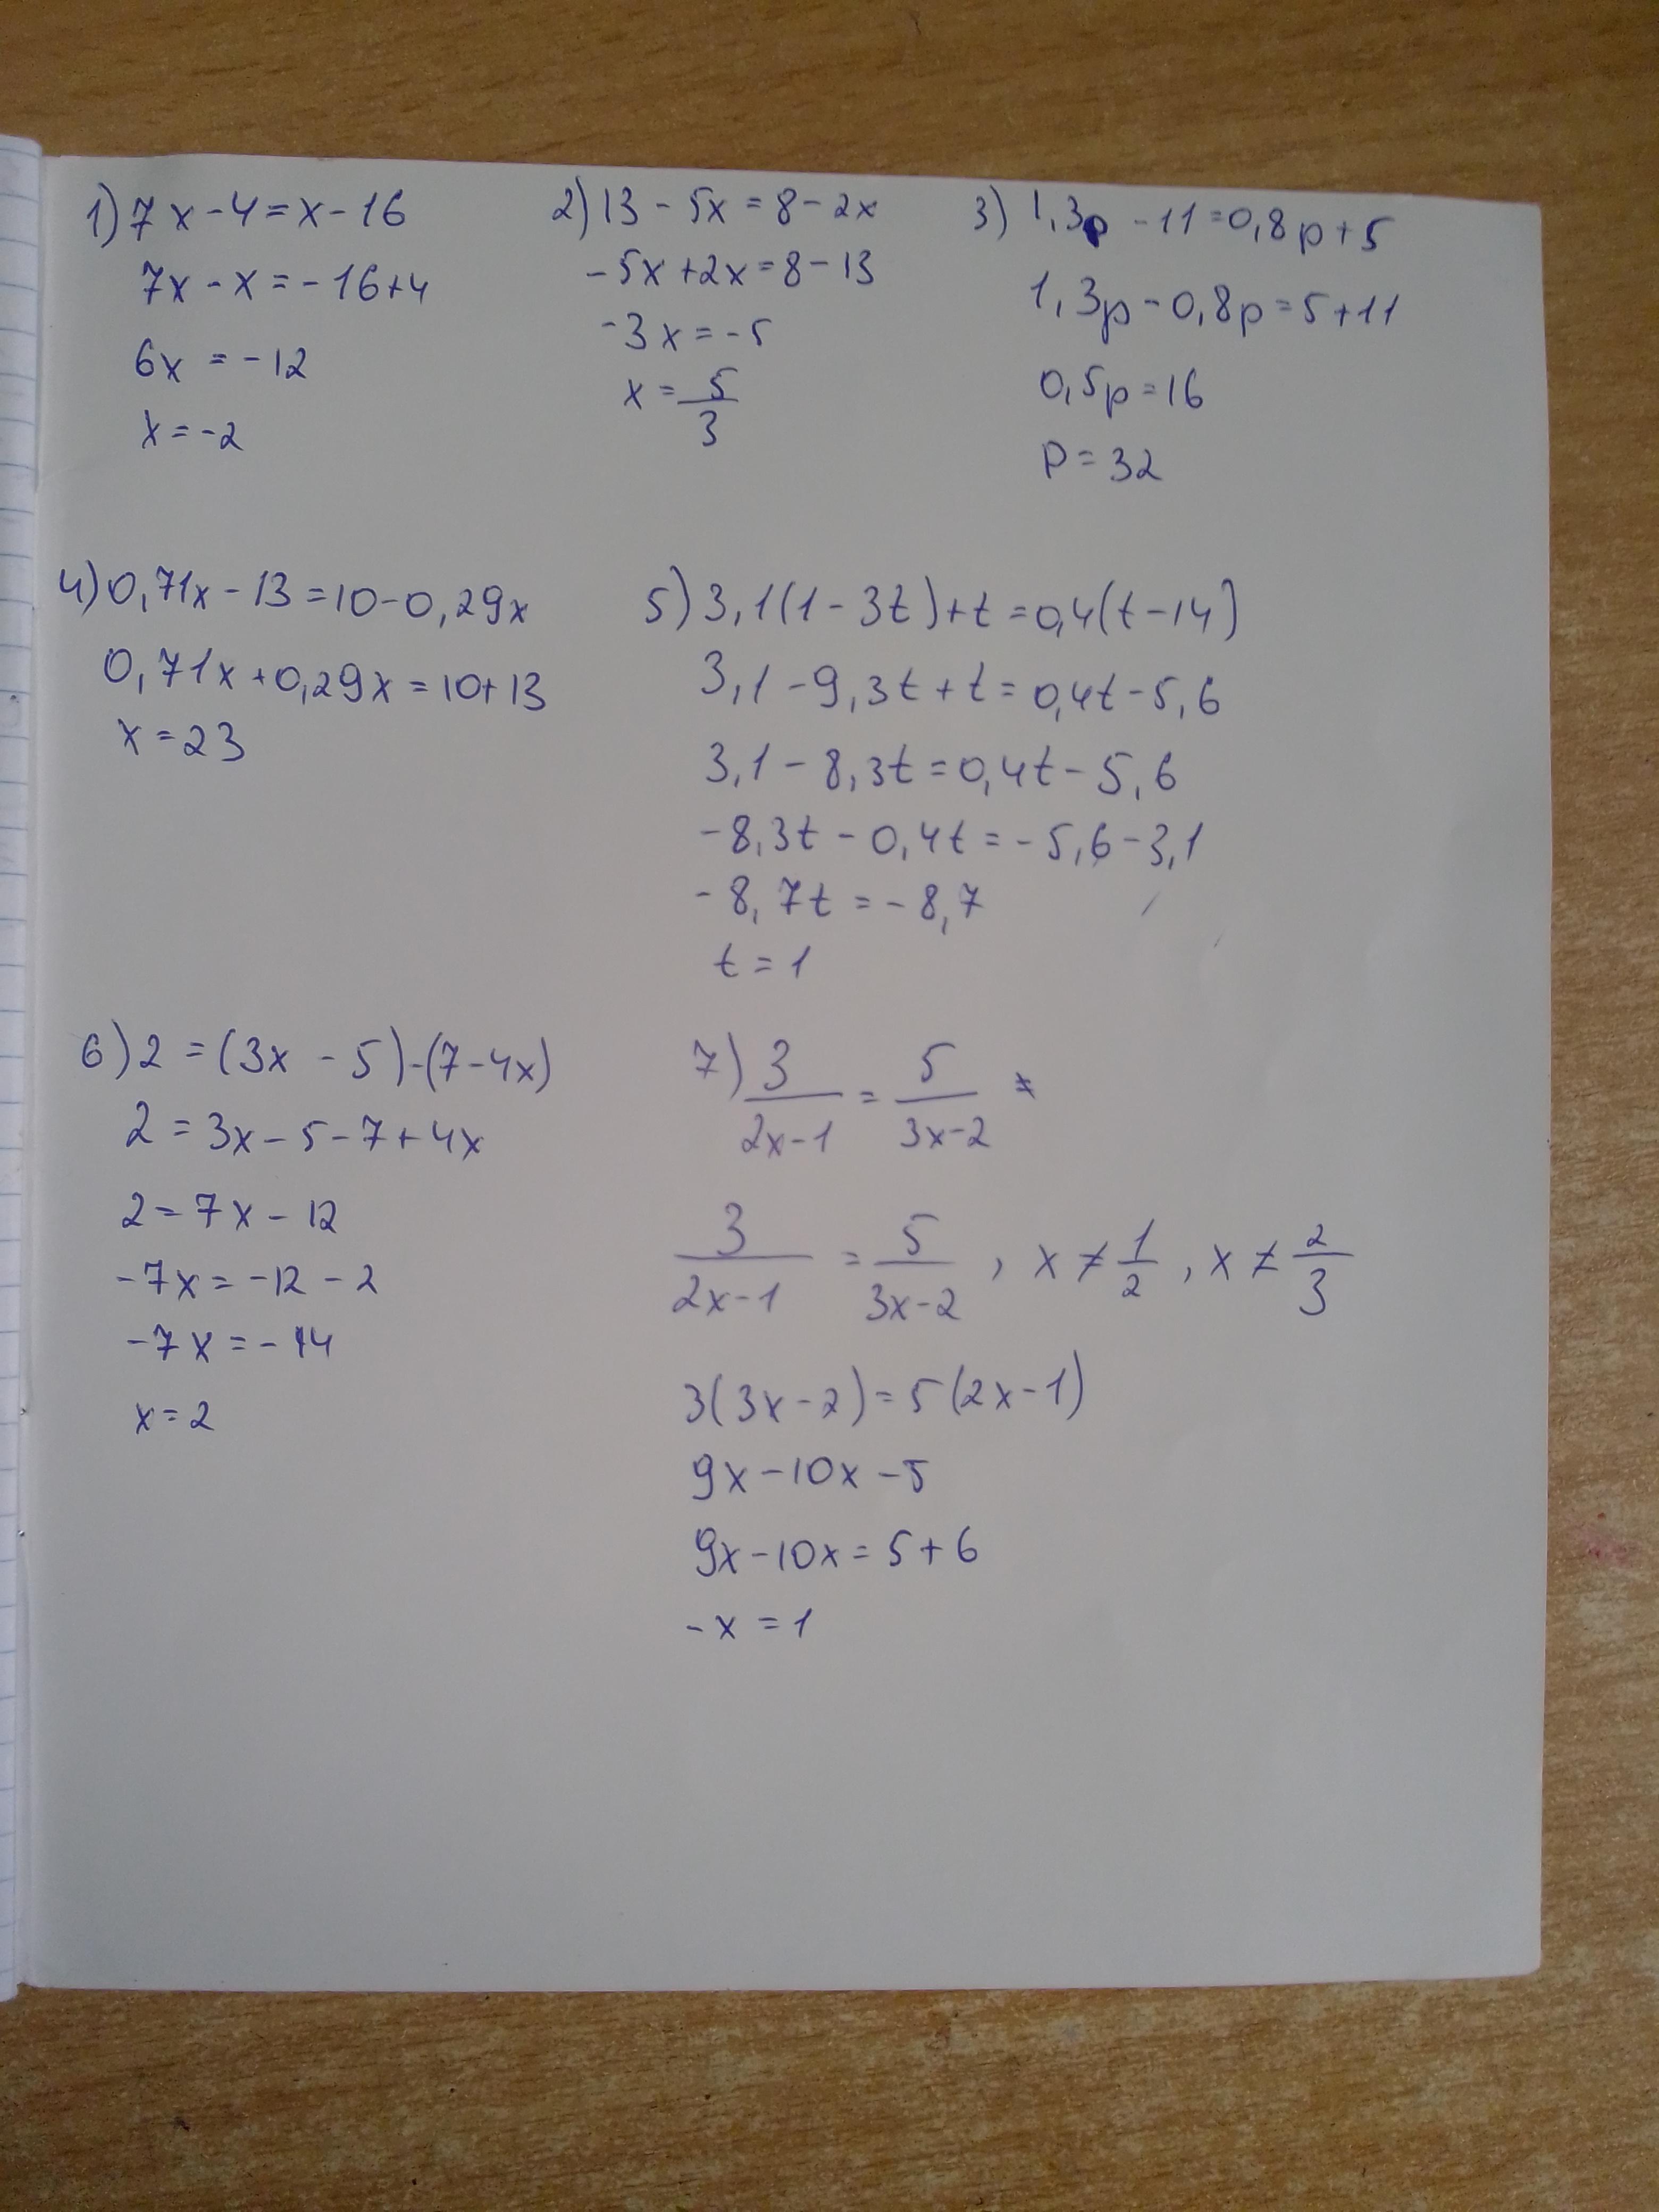 1) 7x - 4 = x - 16
7x - x = - 16 + 4
6x = - 12
x = - 2
2) 13 - 5x = 8 - 2x
- 5x + 2x = 8 - 13
- 3x = - 5
x = 5/3
3) 1,3p - 11 = 0,8p + 5
1,3p - 0,8p = 5 + 11
0,5p = 16
p = 32
4) 0,71x - 13 = 10 - 0,29x
0,71x + 0,29x = 10 + 13
x = 23
5) 3,1(1 - 3t) + t = 0,4(t - 14)
3,1 - 9,3t + t = 0,4t - 5,6
3,1 - 8,3t = 0,4t - 5,6
- 8,3t - 0,4t = - 5,6 - 3,1
- 8,7t = - 8,7
t = 1
6) 2 = (3x - 5) - (7 - 4x)
2 = 3x - 5 - 7 + 4x
2 = 7x - 12
- 7x = - 12 - 2
- 7x = - 14
x = 2
7) 3/(2x - 1) = 5/(3x - 2)
3/(2x - 1) = 5/(3x - 2) , x ≠ 1/2 , x ≠ 2/3
3(3x - 2) = 5(2x - 1)
9x - 10x - 5
9x - 10x = 5 + 6
- x = 1